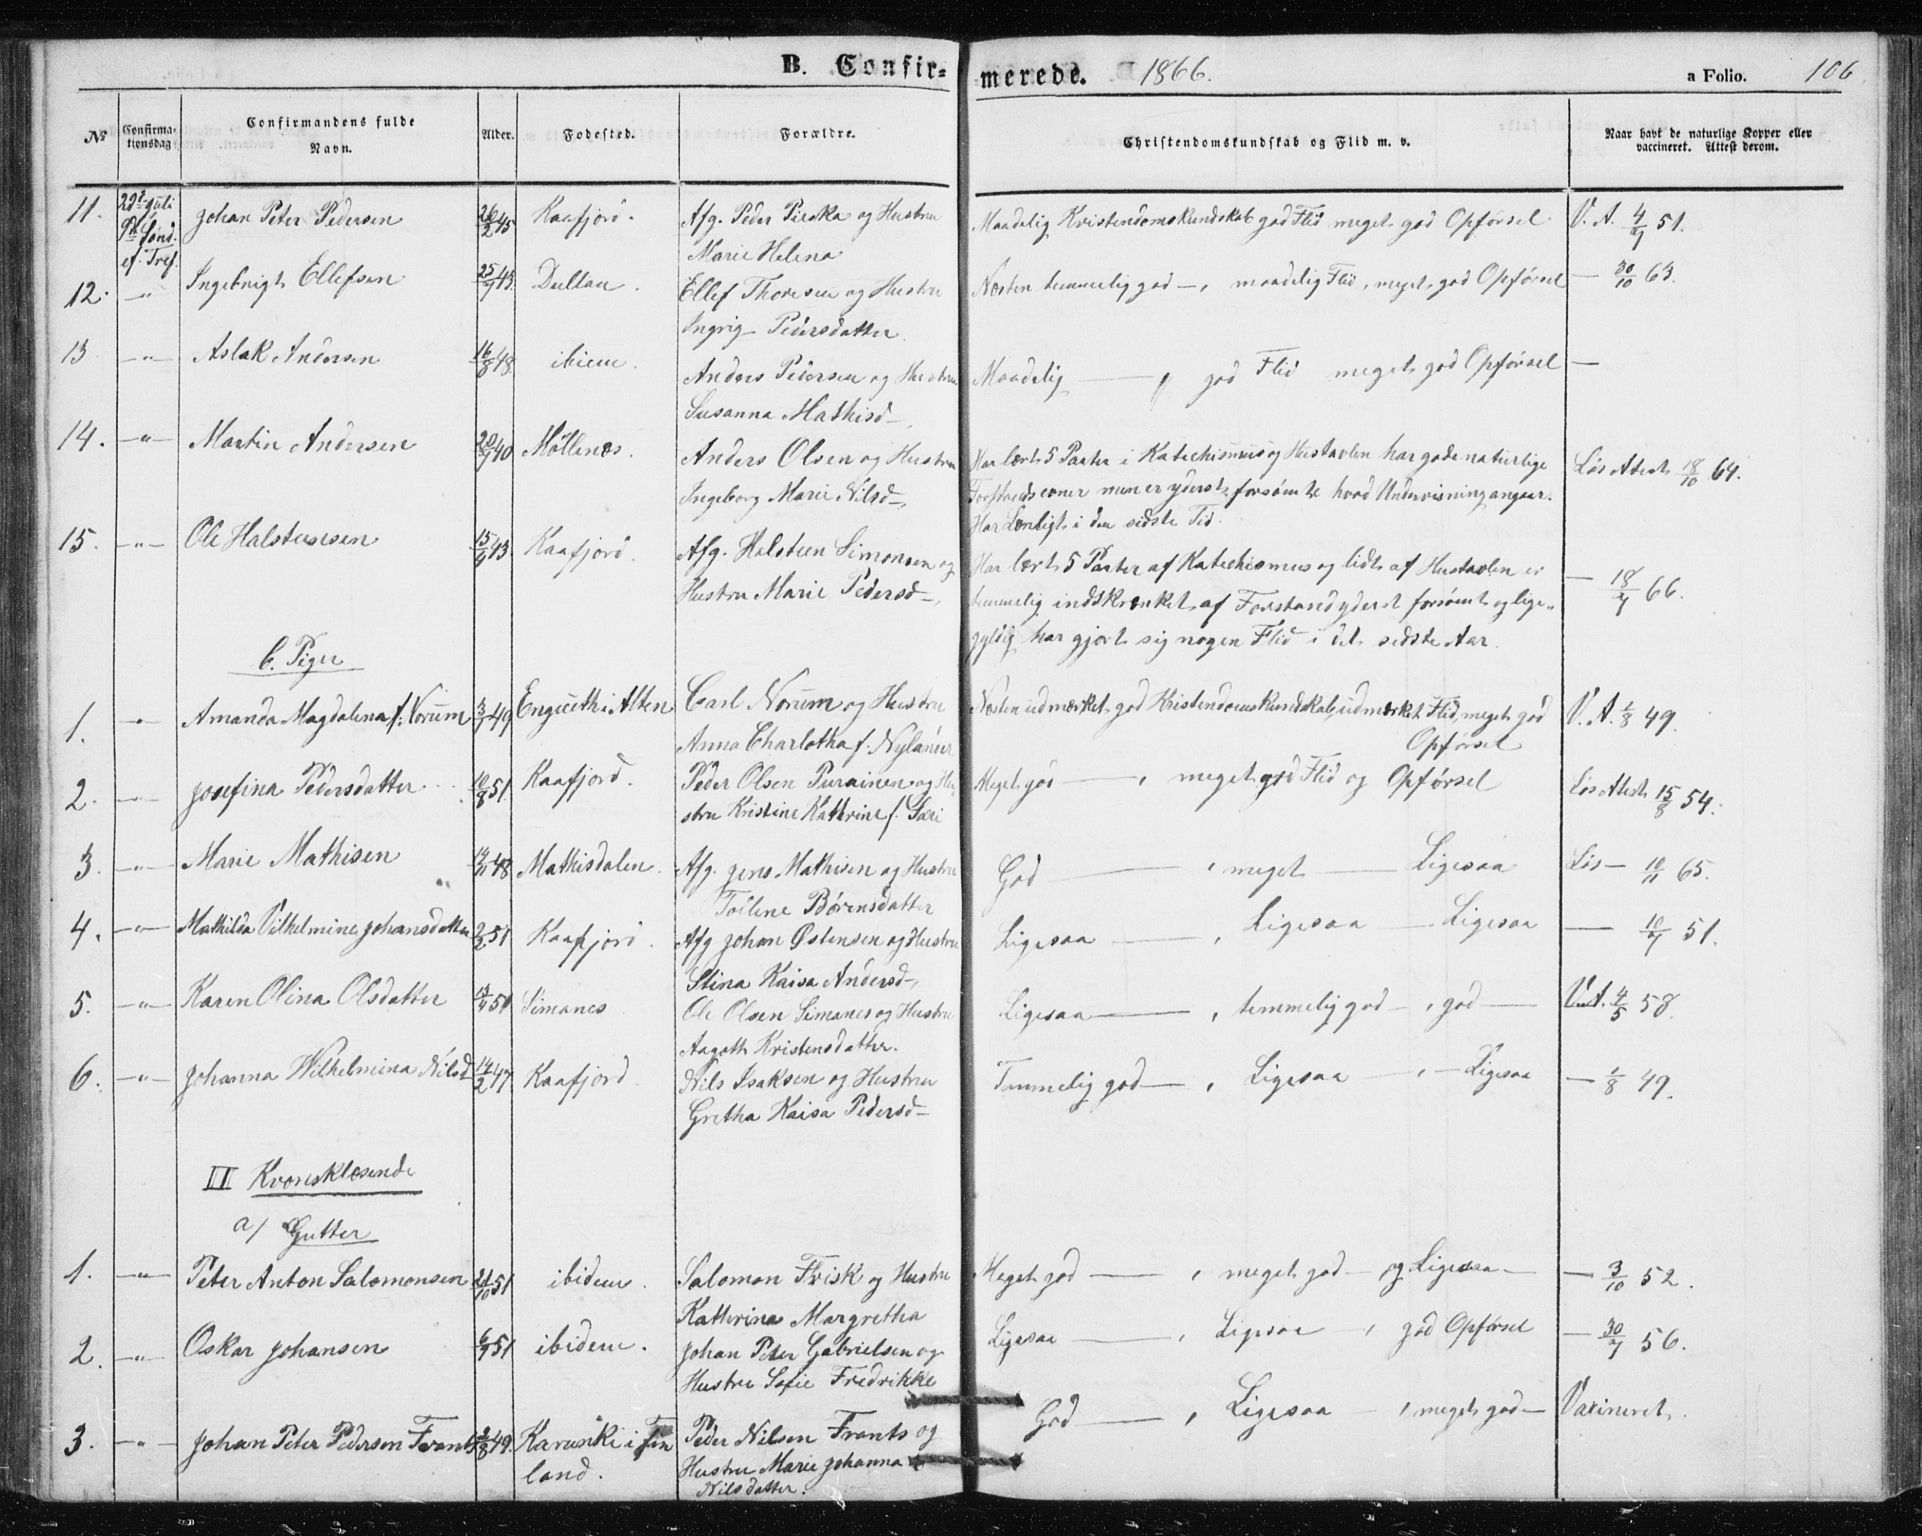 B. Confirmerede. 1866. a Folio. 106
№ Confirmationsdag Confirmandens fulde Navn. Alder. Fødested. Forældre. Christendomskundskab og Flid m. v. Naar havt de naturlige Kopper eller vaccineret. Attest derom.
11. 29de Juli 9de Sønd. ef. Tref. Johan Peter Pedersen 26/2 45 Kaafjord. Afg. Peder Pirska og Hustru Maadelig Kristendomskundskab god Flid meget god Opførsel V. A. 4/7 51.
Marie Helena
12. -"- Ingebrigt Ellefsen 25/7 43. Dullau. Ellef Thoresen og Hustru Næsten temmelig god —, maadelig Flid, meget god Opførsel — 30/10 63.
Ingrig Pedersdatter.
13 -"- Aslak Andersen 16/8 48 ibiem. Anders Pedersen og Hustru Maadelig — " god Flid meget god Opførsel —
Susanna Mathisd—,
14. -"- Martin Andersen 20/7 40 Møllenes. Anders Olsen og Hustru Har lært 5 Parter i Katechismus og Hustavlen har gode naturlige Løs Attest 18/10 64.
Ingeborg Marie Nilsd—, Forstands evner men er yderst forsømt hvad Undervisning angaaer.
Har Lønligt i den sidste Tid.
15. -"- Ole Halstensen 15/9 43. Kaafjord. Afg. Halsteen Simonsen og Har lært 5 Parter af Katechismus og lidt af Hustavlen er — 18/7 66.
Hustru Marie Pedersd—, temmelig indskrænket af Forstand yderst forsømt og lige„
gyldig har gjort sig nogen Flid i det sidste Aar.
b. Piger
1. -"- Amanda Magdalena f: Norum 3/7 49 Engueth i Alten Carl Norum og Hustru Næsten udmærket god Kristendomskundskab, udmærket Flid, meget god V. A. 1/8 49.
Anna Charlotha f. Nylander Opførsel
2. -"- Josefina Pedersdatter 10/8 51. Kaafjord. Peder Olsen Purainen og Hu- Meget god —, meget god Flid og Opførsel Løs Attest 15/8 54.
stru Kristine Kathrine f.
3. -"- Marie Mathisen 14/11 48 Mathisdalen. Afg. Jens Mathisen og Hustru God —, meget — Ligesaa Løs — 10/11 65.
Børensdatter
4. -"- Mathilda Vilhelmine Johansdatter 2/6 51 Kaafjord. Afg Johan Østensen og Hustru Ligesaa —, Ligesaa — Ligesaa — 10/7 51.
Stina Kaisa Andersd—,
5. -"- Karen Olina Olsdatter 13/4 50 Simanes Ole Olsen Simanes og Hustru Ligesaa —, temmelig god —, god — V. A. 4/5 58.
Aagoth Kristensdatter.
6. -"- Johanna Wilhelmina Nilsd 14/2 47 Kaafjord. Nils Isaksen og Hustru Temmelig god —, Ligesaa —, Ligesaa — 1/8 49.
Gretha Kaisa Pedersd—
II Kvænsklæsende
a/ Gutter
1. -"- Peter Anton Salomonsen 21/10 51 ibidem. Salomon Frisk og Hustru Meget god —, meget god — og Ligesaa — — 3/10 52.
Katherina Margretha
2. -"- Oskar Johansen 6/7 51 ibidem. Johan Peter Gabrielsen og Ligesaa —, Ligesaa —, god Opførsel — 30/7 56.
Hustru Sofie Fredrikke
3. -"- Johan Peter Pedersen Frants 2/8 49. Karunki i Fin Peder Nilsen Frants og God —, Ligesaa —, meget god — Vaxineret.
land. Hustru Marie Johanna
Nilsdatter.